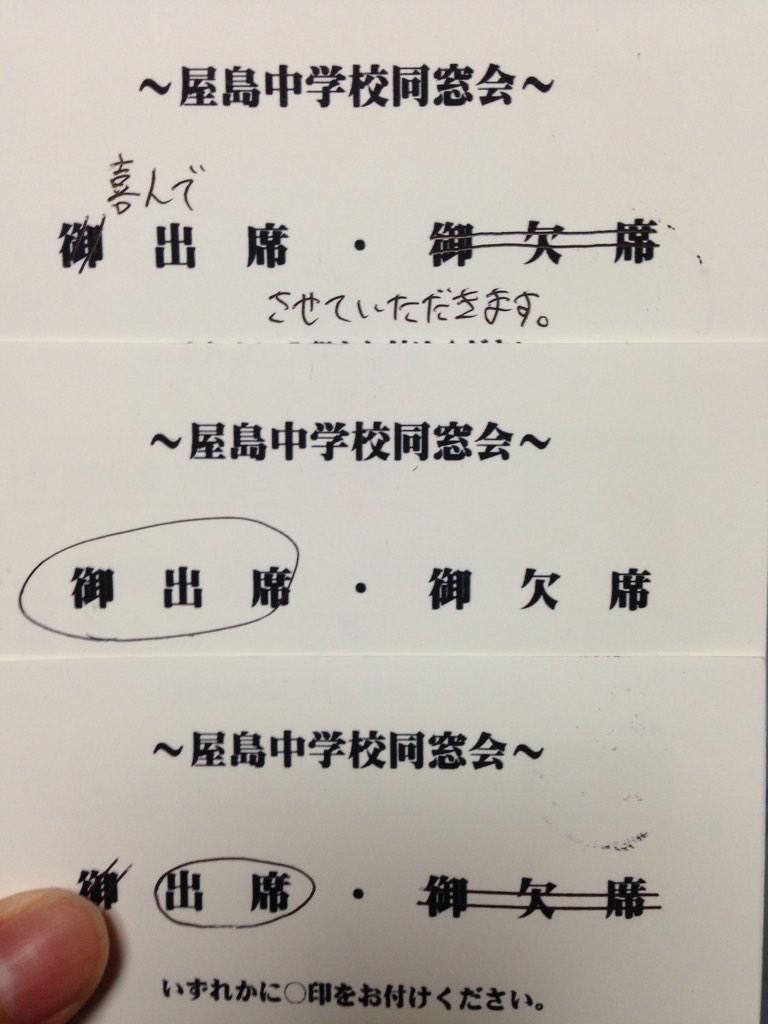 ～屋島中学校同窓会～
喜んで
御出席・御欠席
させていただきます。
～屋島中学校同窓会～
御出席・御欠席
～屋島中学校同窓会～
御出席・御欠席
いずれかに○印をお付けください。